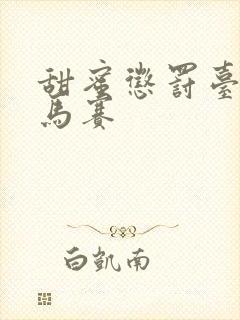 甜蜜懲罰臺
馬賽
白凱南